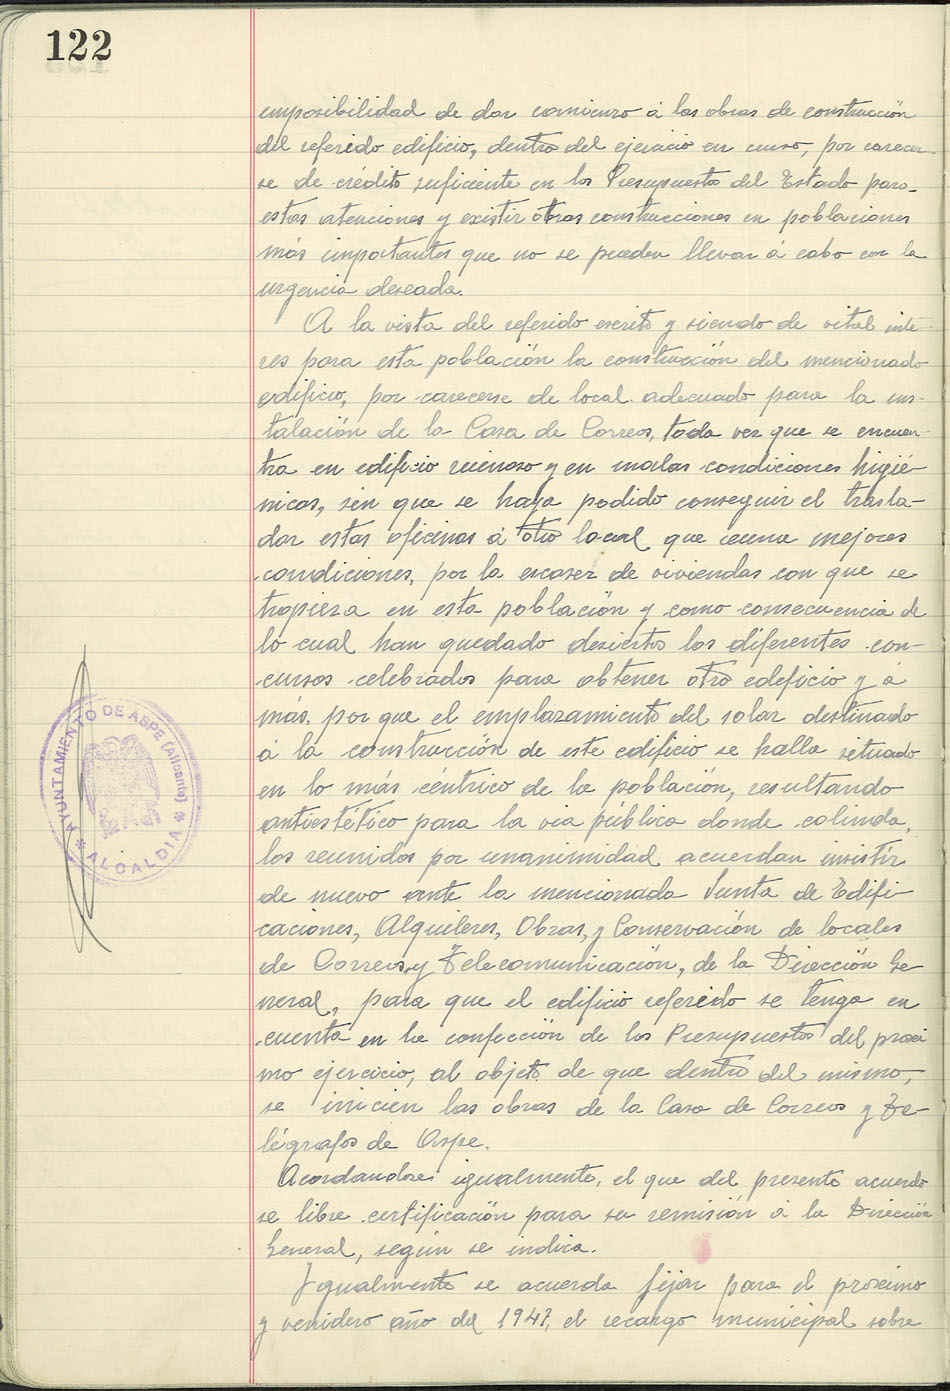 122
imposibilidad de dar comienzo á las obras de construcción
del referido edificio, dentro del ejercicio en curso, por carecer-
se de crédito suficiente en los Presupuestos del Estado para
estas atenciones y existir otras construcciones en poblaciones
más importantes que no se pueden llevar á cabo con la
urgencia deseada.
A la vista del referido escrito y siendo de vital inte-
res para esta población la construcción del mencionado
edificio, por carecerse de local adecuado para la ins-
talación de la Casa de Correos, toda vez que se encuen-
tra en edificio ruinoso y en malas condiciones higié-
nicas, sin que se haya podido conseguir el trasla-
dar estas oficinas á otro local que reuna mejores
condiciones, por la escasez de viviendas con que se
tropieza en esta población y como consecuencia de
lo cual han quedado desiertos los diferentes con-
cursos celebrados para obtener otro edificio y á
más, por que el emplazamiento del solar destinado
á la construcción de este edificio se halla situado
en lo más céntrico de la población, resultando
antiestético para la via pública donde colinda,
los reunidos por unanimidad acuerdan insistir
de nuevo ante la mencionada Junta de Edifi-
caciones, Alquileres, Obras, y Conservación de locales
de Correos y Telecomunicación, de la Dirección Ge
neral, para que el edificio referido se tenga en
cuenta en la confección de los Presupuestos del proxi
mo ejercicio, al objeto de que dentro del mismo,
se inicien las obras de la Casa de Correos y Te-
légrafos de Aspe.
Acordandose igualmente, el que del presente acuerdo
se libre certificación para su remisión á la Dirección
General, según se indica.
Igualmente se acuerda fijar para el próximo
y venidero año del 1947, el recargo municipal sobre
AYUNTAMIENTO DE ASPE (Alicante)
* ALCALDIA *